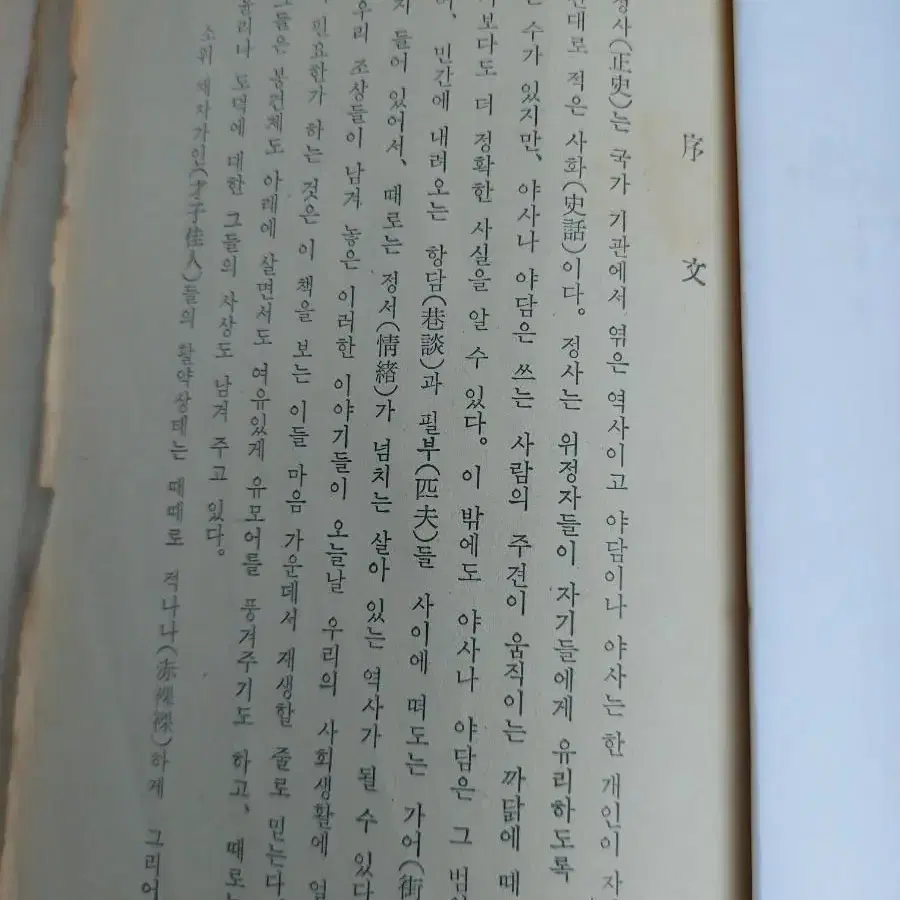 序文
정사(正史)는 국가 기관에서 엮은 역사이고 야담이나 야사는 한 개인이 자
대로 적은 사화(史話)이다. 정사는 위정자들이 자기들에게 유리하도록
수가 있지만, 야사나 야담은 쓰는 사람의 주견이 움직이는 까닭에 때
보다도 더 정확한 사실을 알 수 있다. 이 밖에도 야사나 야담은 그 범
민간에 내려오는 항담(巷談)과 필부(匹夫)들 사이에 떠도는 가어(街
들어 있어서, 때로는 정서(情緖)가 넘치는 살아 있는 역사가 될 수 있다
우리 조상들이 남겨 놓은 이러한 이야기들이 오늘날 우리의 사회생활에
민요한가 하는 것은 이 책을 보는 이들 마음 가운데서 재생할 줄로 믿는다
그들은 봉건체도 아래에 살면서도 여유있게 유모어를 풍겨주기도 하고, 때로는
도덕에 대한 그들의 사상도 남겨 주고 있다.
소위 재자가인(才子佳人)들의 활약상태는 때때로 적나나(赤裸裸)하게 그리어